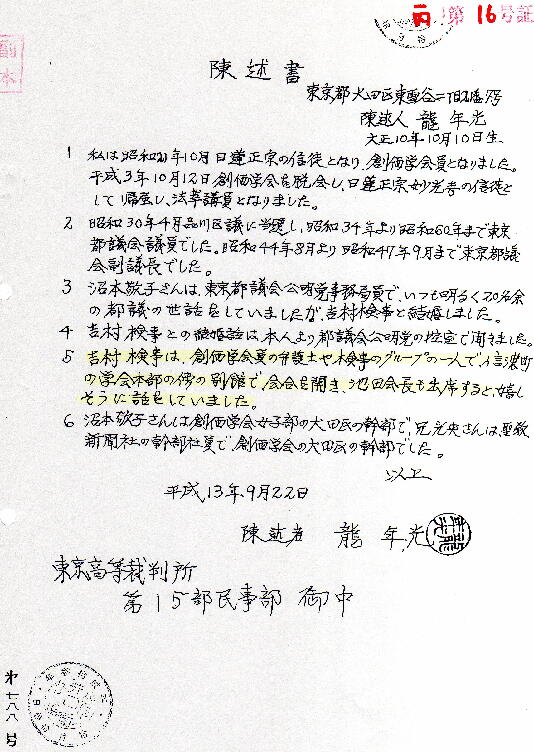 丙 第16号証
副本
陳述書
東京都大田区東雪谷二丁目
陳述人 龍 年光
大正10年10月10日生
1 私は昭和21年10月日蓮正宗の信徒となり、創価学会員となりました。
平成3年10月12日創価学会を脱会し、日蓮正宗妙光寺の信徒と
して帰伏し、法華講員となりました。
2 昭和30年4月品川区議に当選し、昭和34年より昭和60年まで東京
都議会議員でした。昭和44年8月より昭和47年9月まで東京都議
会副議長でした。
3 沼本敬子さんは、東京都議会公明党事務局員で、いつも明るく20名余
の都議の世話をしていましたが、吉村検事と結婚しました。
4 吉村検事との結婚話は、本人より都議会公明党の控室で聞きました。
5 吉村検事は、創価学会員の弁護士や検事のグループの一人で、信濃町
の学会本部の傍の別館で、会合を開き、池田会長も出席すると、嬉し
そうに話をしていました。
6 沼本敬子さんは創価学会女子部の大田区の幹部で、兄光央さんは聖教
新聞社の幹部社員で、創価学会の大田区の幹部でした。
以上
平成13年9月22日
陳述者 龍 年光
東京高等裁判所
第15部民事部 御中
第七八八号